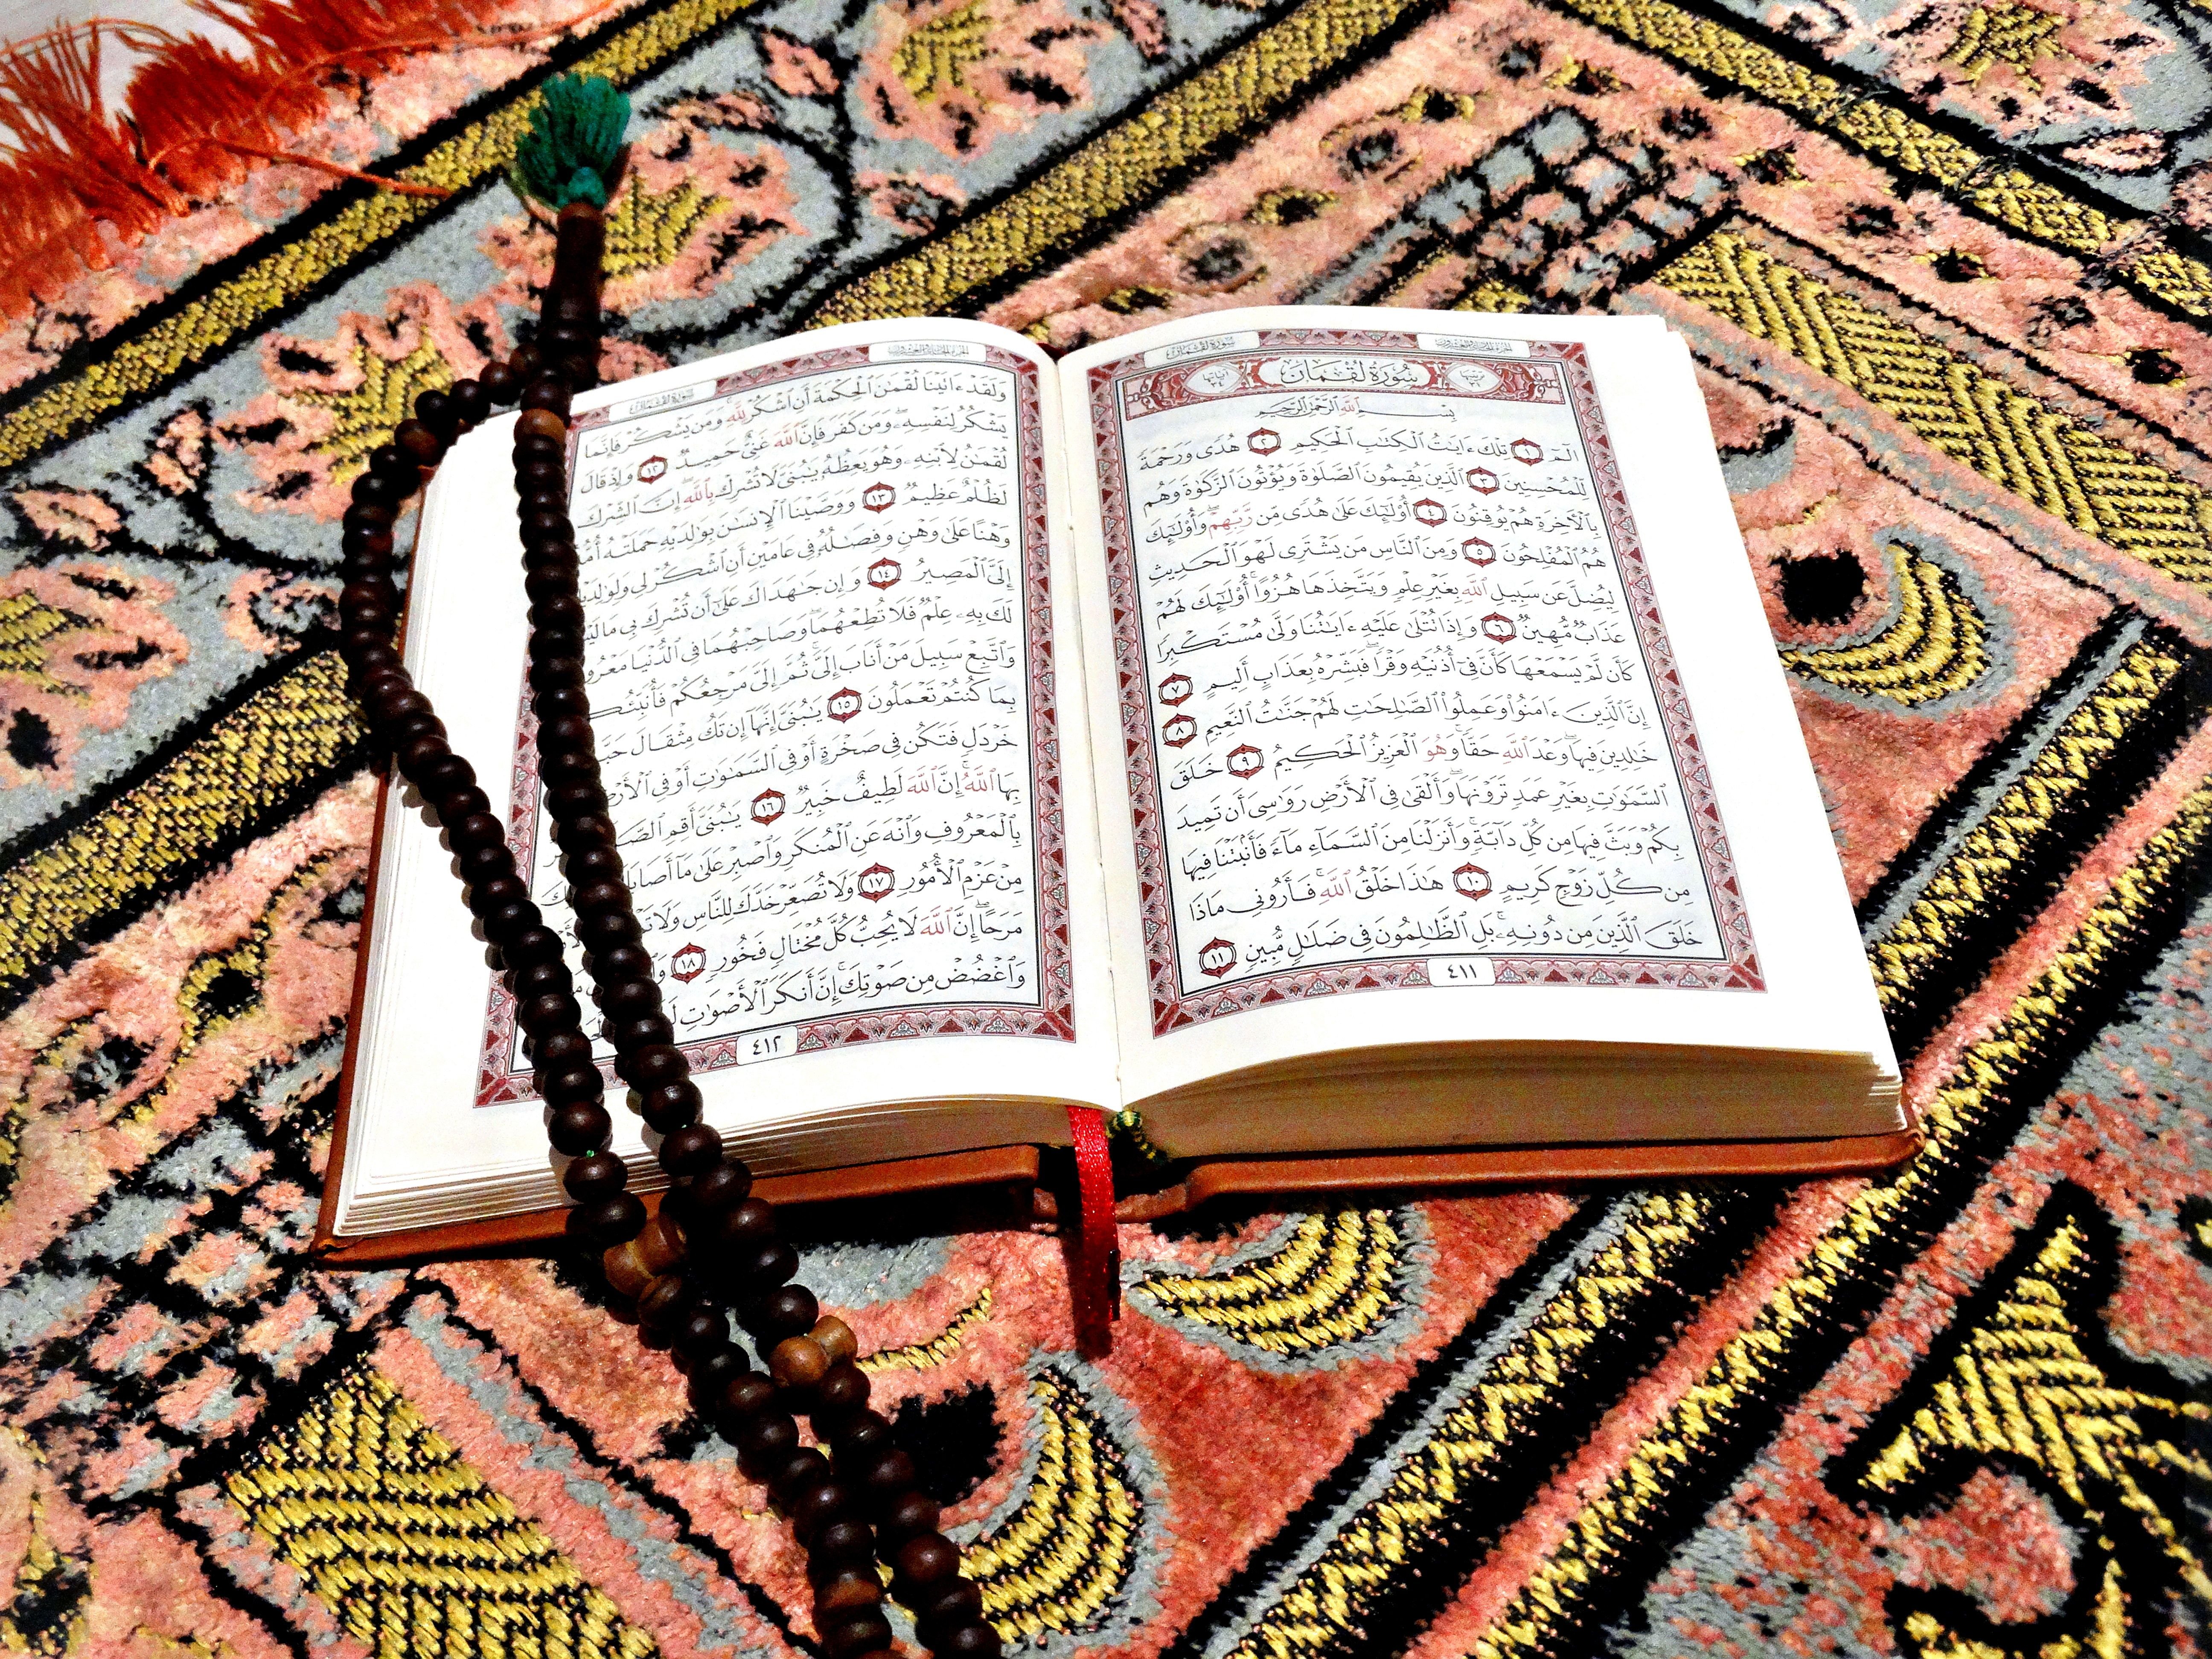 سورة لقمان
الجزء الحادي والعشرون
سُورَةُ لُقۡمَان
بِسۡمِ ٱللَّهِ ٱلرَّحۡمَٰنِ ٱلرَّحِيمِ
الٓمٓ ١ تِلۡكَ ءَايَٰتُ ٱلۡكِتَٰبِ ٱلۡحَكِيمِ ٢ هُدٗى وَرَحۡمَةٗ
لِّلۡمُحۡسِنِينَ ٣ ٱلَّذِينَ يُقِيمُونَ ٱلصَّلَوٰةَ وَيُؤۡتُونَ ٱلزَّكَوٰةَ وَهُم
بِٱلۡأٓخِرَةِ هُمۡ يُوقِنُونَ ٤ أُوْلَٰٓئِكَ عَلَىٰ هُدٗى مِّن رَّبِّهِمۡۖ وَأُوْلَٰٓئِكَ
هُمُ ٱلۡمُفۡلِحُونَ ٥ وَمِنَ ٱلنَّاسِ مَن يَشۡتَرِي لَهۡوَ ٱلۡحَدِيثِ
لِيُضِلَّ عَن سَبِيلِ ٱللَّهِ بِغَيۡرِ عِلۡمٖ وَيَتَّخِذَهَا هُزُوًاۚ أُوْلَٰٓئِكَ لَهُمۡ
عَذَابٞ مُّهِينٞ ٦ وَإِذَا تُتۡلَىٰ عَلَيۡهِ ءَايَٰتُنَا وَلَّىٰ مُسۡتَكۡبِرٗا
كَأَن لَّمۡ يَسۡمَعۡهَا كَأَنَّ فِيٓ أُذُنَيۡهِ وَقۡرٗاۖ فَبَشِّرۡهُ بِعَذَابٍ أَلِيمٍ ٧
إِنَّ ٱلَّذِينَ ءَامَنُواْ وَعَمِلُواْ ٱلصَّٰلِحَٰتِ لَهُمۡ جَنَّٰتُ ٱلنَّعِيمِ ٨
خَٰلِدِينَ فِيهَاۖ وَعۡدَ ٱللَّهِ حَقّٗاۚ وَهُوَ ٱلۡعَزِيزُ ٱلۡحَكِيمُ ٩ خَلَقَ
ٱلسَّمَٰوَٰتِ بِغَيۡرِ عَمَدٖ تَرَوۡنَهَاۖ وَأَلۡقَىٰ فِي ٱلۡأَرۡضِ رَوَٰسِيَ أَن تَمِيدَ
بِكُمۡ وَبَثَّ فِيهَا مِن كُلِّ دَآبَّةٖۚ وَأَنزَلۡنَا مِنَ ٱلسَّمَآءِ مَآءٗ فَأَنۢبَتۡنَا فِيهَا
مِن كُلِّ زَوۡجٖ كَرِيمٍ ١٠ هَٰذَا خَلۡقُ ٱللَّهِۚ فَأَرُونِي مَاذَا
خَلَقَ ٱلَّذِينَ مِن دُونِهِۦۚ بَلِ ٱلظَّٰلِمُونَ فِي ضَلَٰلٖ مُّبِينٖ ١١
٤١١
الجزء الحادي والعشرون
سورة لقمان
وَلَقَدۡ ءَاتَيۡنَا لُقۡمَٰنَ ٱلۡحِكۡمَةَ أَنِ ٱشۡكُرۡ لِلَّهِۚ وَمَن يَشۡكُرۡ فَإِنَّمَا
يَشۡكُرُ لِنَفۡسِهِۦۖ وَمَن كَفَرَ فَإِنَّ ٱللَّهَ غَنِيٌّ حَمِيدٞ ١٢ وَإِذۡ قَالَ
لُقۡمَٰنُ لِٱبۡنِهِۦ وَهُوَ يَعِظُهُۥ يَٰبُنَيَّ لَا تُشۡرِكۡ بِٱللَّهِۖ إِنَّ ٱلشِّرۡكَ
لَظُلۡمٌ عَظِيمٞ ١٣ وَوَصَّيۡنَا ٱلۡإِنسَٰنَ بِوَٰلِدَيۡهِ حَمَلَتۡهُ أُمُّهُۥ
وَهۡنًا عَلَىٰ وَهۡنٖ وَفِصَٰلُهُۥ فِي عَامَيۡنِ أَنِ ٱشۡكُرۡ لِي وَلِوَٰلِدَيۡكَ
إِلَيَّ ٱلۡمَصِيرُ ١٤ وَإِن جَٰهَدَاكَ عَلَىٰٓ أَن تُشۡرِكَ بِي مَا لَيۡسَ
لَكَ بِهِۦ عِلۡمٞ فَلَا تُطِعۡهُمَاۖ وَصَاحِبۡهُمَا فِي ٱلدُّنۡيَا مَعۡرُوفٗاۖ
وَٱتَّبِعۡ سَبِيلَ مَنۡ أَنَابَ إِلَيَّۚ ثُمَّ إِلَيَّ مَرۡجِعُكُمۡ فَأُنَبِّئُكُم
بِمَا كُنتُمۡ تَعۡمَلُونَ ١٥ يَٰبُنَيَّ إِنَّهَآ إِن تَكُ مِثۡقَالَ حَبَّةٖ
خَرۡدَلٖ فَتَكُن فِي صَخۡرَةٍ أَوۡ فِي ٱلسَّمَٰوَٰتِ أَوۡ فِي ٱلۡأَرۡضِ
بِهَا ٱللَّهُۚ إِنَّ ٱللَّهَ لَطِيفٌ خَبِيرٞ ١٦ يَٰبُنَيَّ أَقِمِ
بِٱلۡمَعۡرُوفِ وَٱنۡهَ عَنِ ٱلۡمُنكَرِ وَٱصۡبِرۡ عَلَىٰ مَآ
مِنۡ عَزۡمِ ٱلۡأُمُورِ ١٧ وَلَا تُصَعِّرۡ خَدَّكَ لِلنَّاسِ وَلَا
مَرَحًاۖ إِنَّ ٱللَّهَ لَا يُحِبُّ كُلَّ مُخۡتَالٖ فَخُورٖ ١٨
وَٱغۡضُضۡ مِن صَوۡتِكَۚ إِنَّ أَنكَرَ ٱلۡأَصۡوَٰتِ
٤١٢